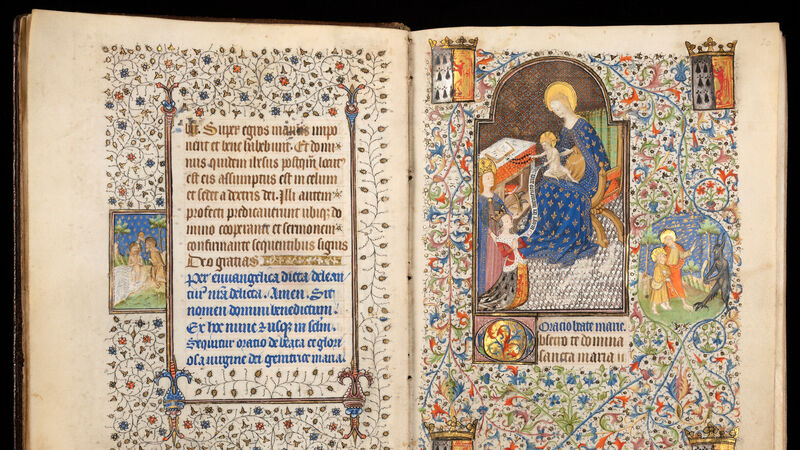 Super egros manus impo
nent et bene habebunt. Et domi
nus quidem ihesus postqͣm locutꝰ
est eis assumptus est in celum
et sedet a dextris dei. Illi autem
profecti predicauerunt ubiqꝫ do
mino cooperante et sermonem
confirmante sequentibus signis
Deo gratias
Per euuangelica dicta delean
tur nr̄a delicta. Amen. Sit
nomen domini benedictum
Ex hoc nunc ⁊ usqꝫ in sclm̄.
Sequitur oratio de beata et glori
osa uirgine dei genitrice maria.
Oratio beate marie.
Obsecro te domina
sancta maria